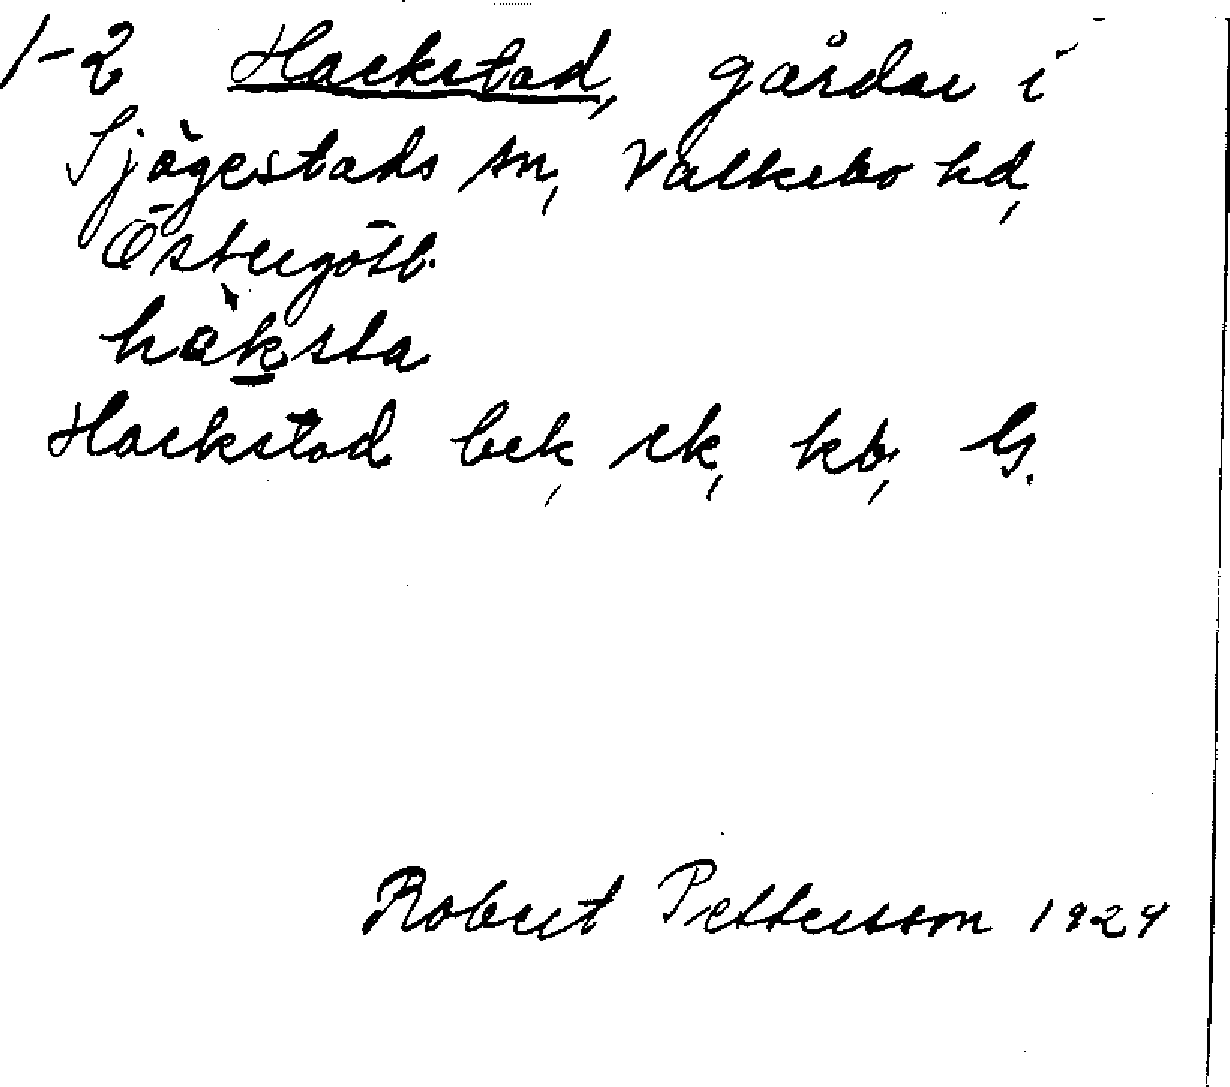 1-2 Hackstad, gårdar i
Sjögestads sn, Valkebo hd,
Östergötl.
hàksta
Hackstad bek, rk, kb, G.
Robert Pettersson 1924